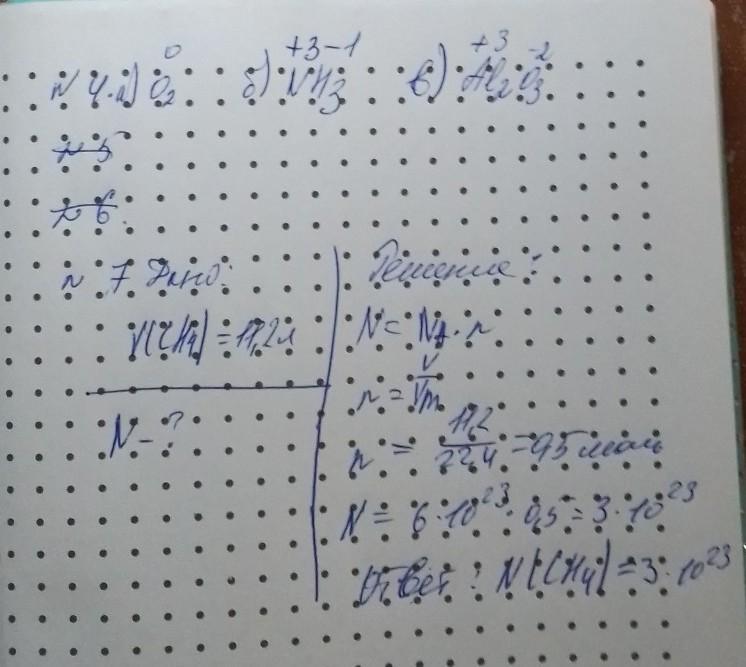 n 4. а) O₂⁰ б) N⁺³H₃⁻¹ в) Al₂⁺³O₃⁻²
n 5
n 6.
n 7 Дано:
V(CH₄) = 11,2 л
N - ?
Решение:
N = Nₐ · n
n = V/Vm
n = 11,2/22,4 = 0,5 моль
N = 6 · 10²³ · 0,5 = 3 · 10²³
Ответ: N(CH₄) = 3 · 10²³